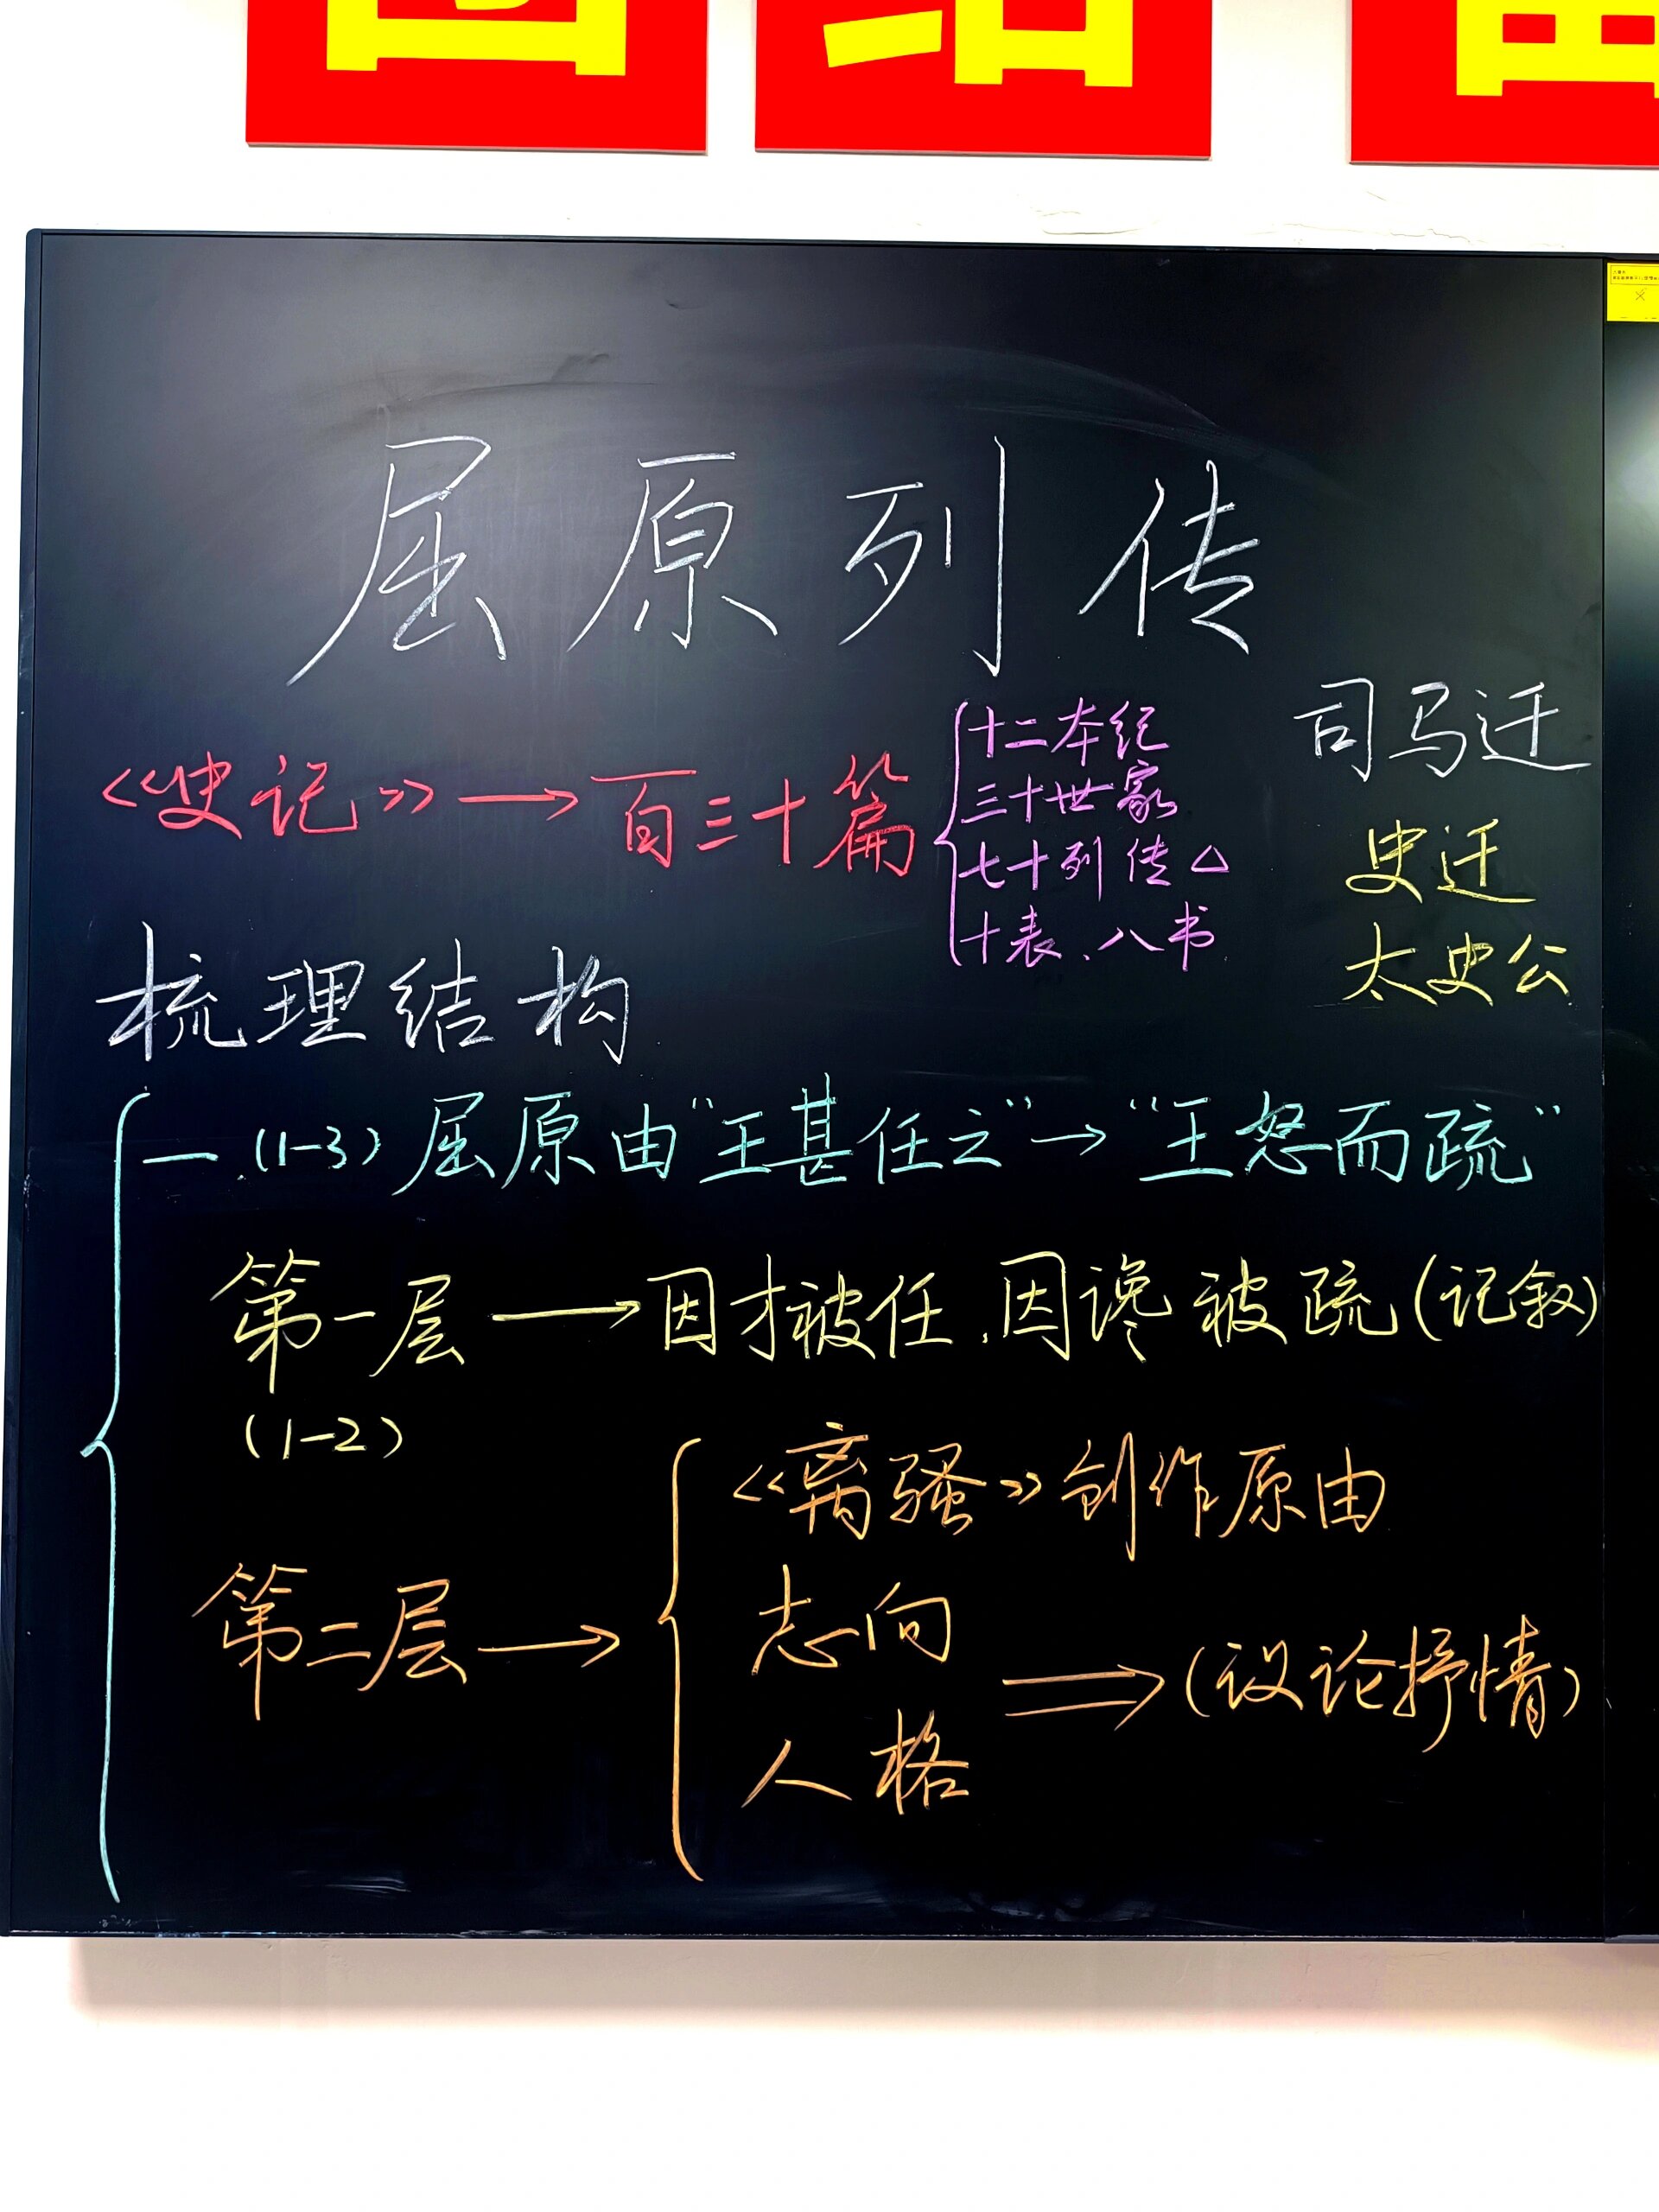 团结奋
屈原列传
司马迁
史迁
太史公
《史记》→百三十篇
十二本纪
三十世家
七十列传△
十表、八书
梳理结构
一.(1-3)屈原由"王甚任之"→"王怒而疏"
第一层→因才被任.因谗被疏(记叙)
(1-2)
第二层→
《离骚》创作原由
志向
人格
⇒(议论抒情)